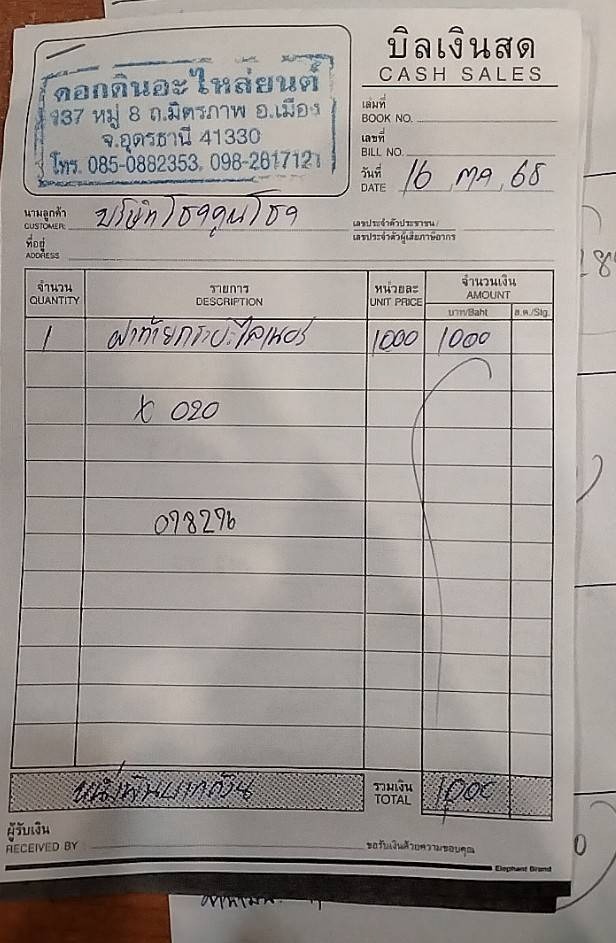 ดอกดินอะไหล่ยนต์
137 หมู่ 8 ถ.มิตรภาพ อ.เมือง
จ.อุดรธานี 41330
โทร. 085-0882353, 098-2617121
บิลเงินสด
CASH SALES
เล่มที่
BOOK NO.
เลขที่
BILL NO.
วันที่
DATE 16 , ตค , 68
นามลูกค้า
CUSTOMER: บริษัท โชคคูนโชค
ที่อยู่
ADDRESS
เลขประจำตัวประชาชน/
เลขประจำตัวผู้เสียภาษีอากร
จำนวน
QUANTITY
รายการ
DESCRIPTION
หน่วยละ
UNIT PRICE
จำนวนเงิน
AMOUNT
บาท/Baht ส.ต./Stg.
1 ฝาท้ายกระบะไลเนอร์ 1000 1000
X 020
098296
หนึ่งพันบาทถ้วน
รวมเงิน
TOTAL 1,000
ผู้รับเงิน
RECEIVED BY
ขอรับเงินด้วยความขอบคุณ
Elephant Brand